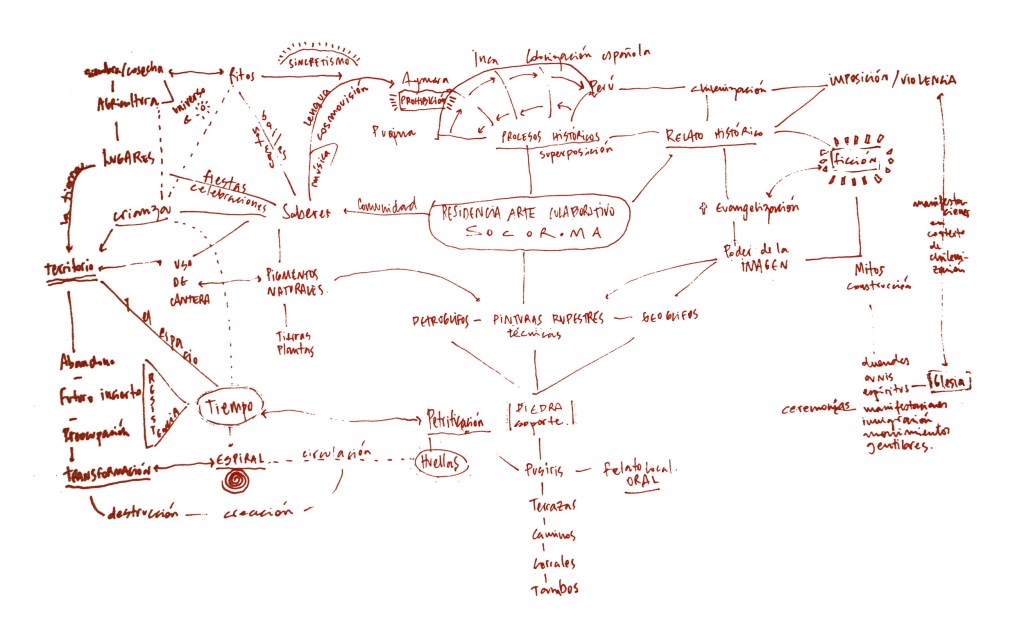 SINCRETISMO
Inca
Colonización española
siembra/cosecha
Ritos
Aymara
PROHIBICIÓN
Perú
chilenización
IMPOSICIÓN/VIOLENCIA
Agricultura
universo
bailes
cantos
lengua
cosmovisión
música
Puquina
PROCESOS HISTÓRICOS
superposición
RELATO HISTÓRICO
ficción
LUGARES
la tierra
fiestas
celebraciones
crianza
Saberes
Comunidad
RESIDENCIA ARTE COLABORATIVO
SOCOROMA
Evangelización
manifestaciones
en
contexto
de
chilenización
territorio
USO
DE
CANTERA
PIGMENTOS
NATURALES
Poder de la
IMAGEN
Mitos
construcción
y el espacio
Tierras
Plantas
PETROGLIFOS - PINTURAS RUPESTRES - GEOGLIFOS
técnicas
Abandono
Futuro incierto
Preocupación
TRANSFORMACIÓN
RESISTENCIA
Tiempo
Petrificación
PIEDRA
soporte
duendes
ovnis
espíritus
Iglesia
ceremonias
manifestaciones
inmigración
movimientos
gentiles.
ESPIRAL
circulación
Huellas
destrucción - creación
Pusiris - Relato local
ORAL
Terrazas
Caminos
Corrales
Tambos